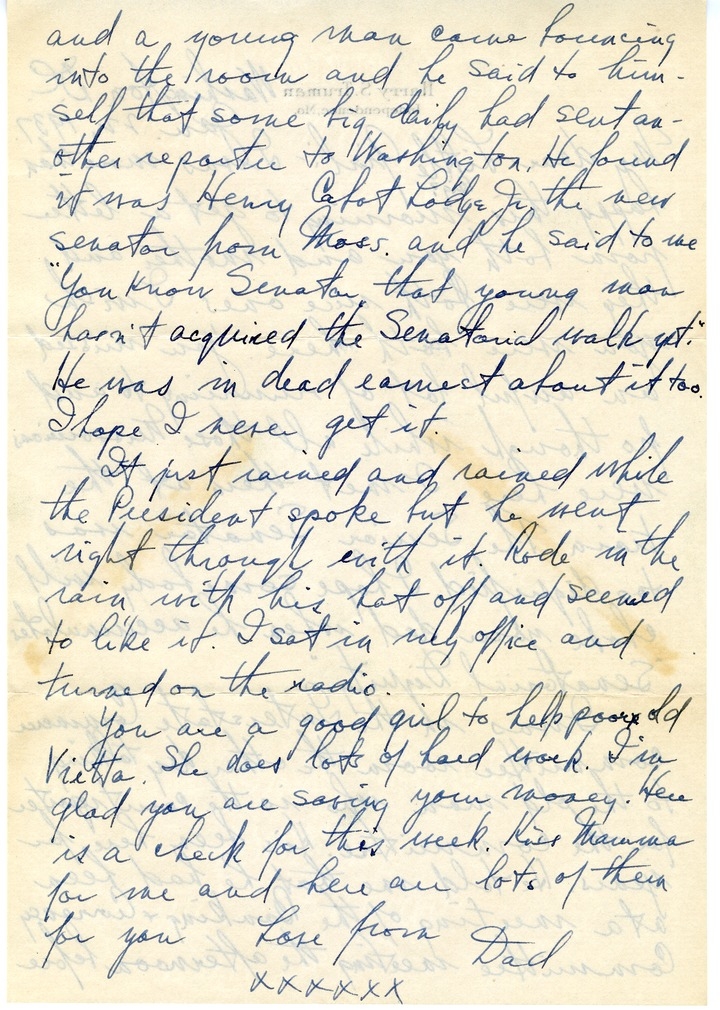 and a young man came bouncing
into the room and he said to him-
self that some big daily had sent an-
other reporter to Washington. He found
it was Henry Cabot Lodge Jr, the new
senator from Mass. and he said to me
"You know Senator, that young man
hasn't acquired the Senatorial walk yet."
He was in dead earnest about it too.
I hope I never get it.
It just rained and rained while
the President spoke but he went
right through with it. Rode in the
rain with his hat off and seemed
to like it. I sat in my office and
turned on the radio.
You are a good girl to help poor old
Vietta. She does lots of hard work. I'm
glad you are saving your money. Here
is a check for this week. Kiss Mamma
for me and here are lots of them
for you Love from Dad
xxxxxxx